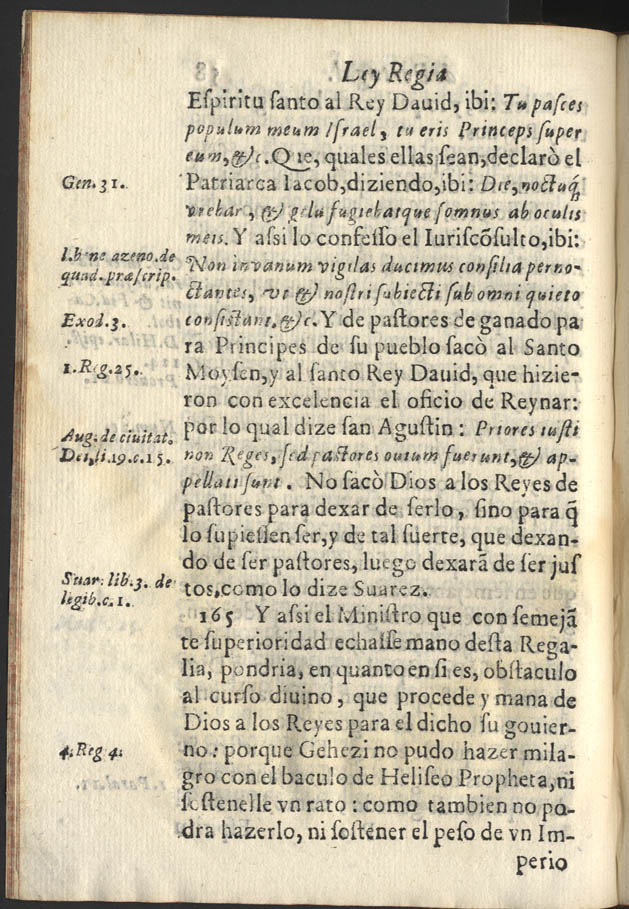 Ley Regia
Eſpiritu ſanto al Rey Dauid, ibi: Tu paſces
populum meum Iſrael, tu eris Princeps ſuper
eum, &c. Que, quales ellas ſean, declarò el
Gen. 31.
Patriarca Iacob, diziendo, ibi: Die, noctuq́
vrebar, & gelu fugiebatque ſomnus ab oculis
meis. Y aſsi lo confeſſo el Iuriſcõſulto, ibi:
l. bene azeno. de
quad. præſcrip.
Non in vanum vigilas ducimus conſilia perno-
ctantes, vt & noſtri ſubiecti ſub omni quieto
Exod. 3.
conſiſtant. &c. Y de paſtores de ganado pa
ra Principes de ſu pueblo ſacò al Santo
1. Reg. 25.
Moyſen, y al ſanto Rey Dauid, que hizie-
ron con excelencia el oficio de Reynar:
Aug. de ciuitat.
Dei, li. 19. c. 15.
por lo qual dize ſan Aguſtin: Priores iuſti
non Reges, ſed paſtores ouium fuerunt, & ap-
pellati ſunt. No ſacò Dios a los Reyes de
paſtores para dexar de ſerlo, ſino para q̃
lo ſupieſſen ſer, y de tal ſuerte, que dexan-
do de ſer paſtores, luego dexarã de ſer juſ
Suar. lib. 3. de
legib. c. 1.
tos, como lo dize Suarez.
165 Y aſsi el Miniſtro que con ſemejã
te ſuperioridad echaſſe mano deſta Rega-
lia, pondria, en quanto en ſi es, obſtaculo
al curſo diuino, que procede y mana de
Dios a los Reyes para el dicho ſu gouier-
4. Reg. 4.
no: porque Gehezi no pudo hazer mila-
gro con el baculo de Heliſeo Propheta, ni
ſoſtenelle vn rato: como tambien no po-
dra hazerlo, ni ſoſtener el peſo de vn Im-
perio